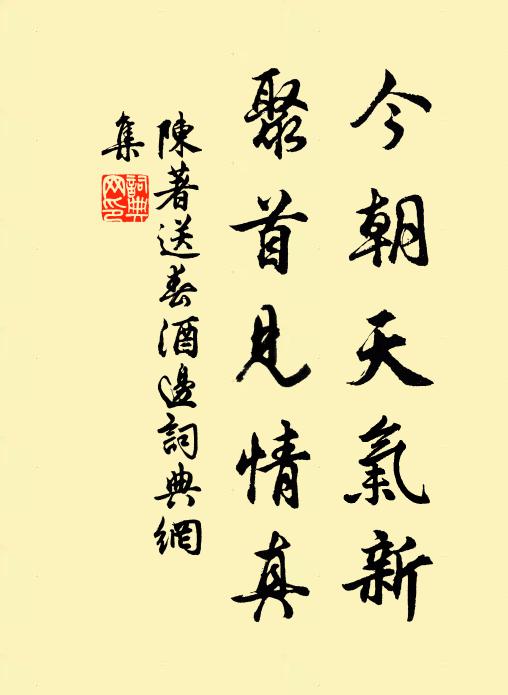 今朝天氣新
聚首見情真
陳著送春酒邊詞典網
集
詞典網印